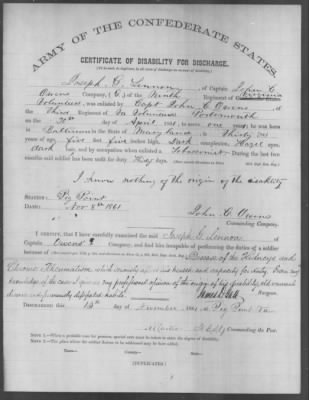 ARMY OF THE CONFEDERATE STATES.
CERTIFICATE OF DISABILITY FOR DISCHARGE.
Joseph G. Lennon, of Captain John C
Owens Company, ( ) of the Ninth Regiment of Virginia
Volunteers, was enlisted by Capt John C Owens of
the Third Regiment of Va Volunteers at Portsmouth
on the 20th day of April 1861, to serve one year; he was born
in Baltimore in the State of Maryland, is Thirty one
years of age, five feet five inches high, Dark complexion, Hazel eyes,
dark hair, and by occupation when enlisted a . During the last two
months said soldier has been unfit for duty days.
I know nothing of the origin of the disability
STATION: Pig Point
DATE: Nov 8th 1861
John C. Owens
Commanding Company.
I CERTIFY, that I have carefully examined the said Joseph G Lennon of
Captain Owens' Company, and find him incapable of performing the duties of a soldier
because of Disease of the Kidneys and
Chronic Rheumatism which his health and capacity for duty. From my
knowledge of the case I give as my professional opinion of the origin of his disability,
Surgeon.
DISCHARGED this 13th day of November 1861, at Pig Point Va
Commanding the Post.
NOTE 1.—When a probable case for pension, special care must be taken to state the degree of disability.
NOTE 2.—The place where the soldier desires to be addressed may be here added.
Town—
County—
State—
(DUPLICATES.)